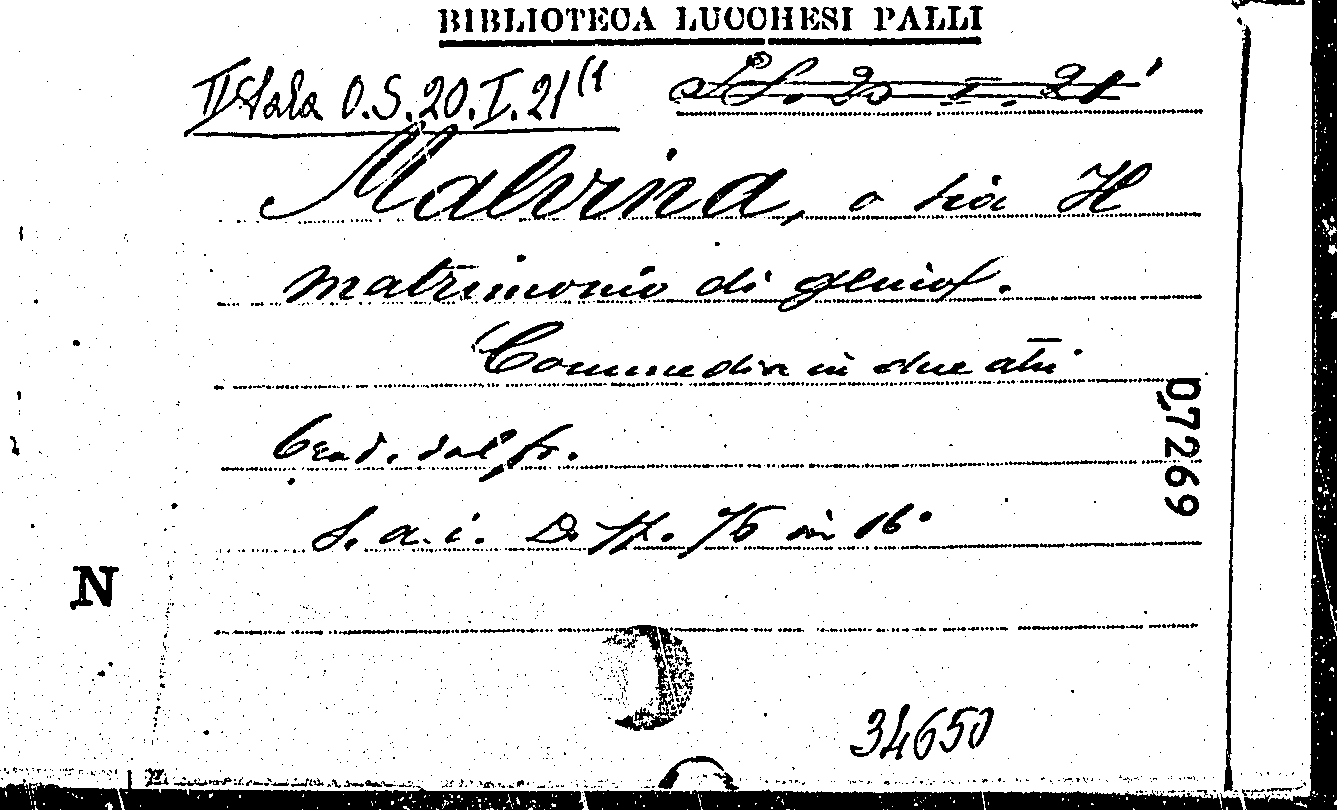 BIBLIOTECA LUCCHESI PALLI
II Sala O.S.20.I.21(1
20 I. 21'
Malvina, o sia Il
matrimonio di genio.
Commedia in due atti
Trad. dal fr.
S. a. i. D. pp. 76 in 16°
07269
N
34650